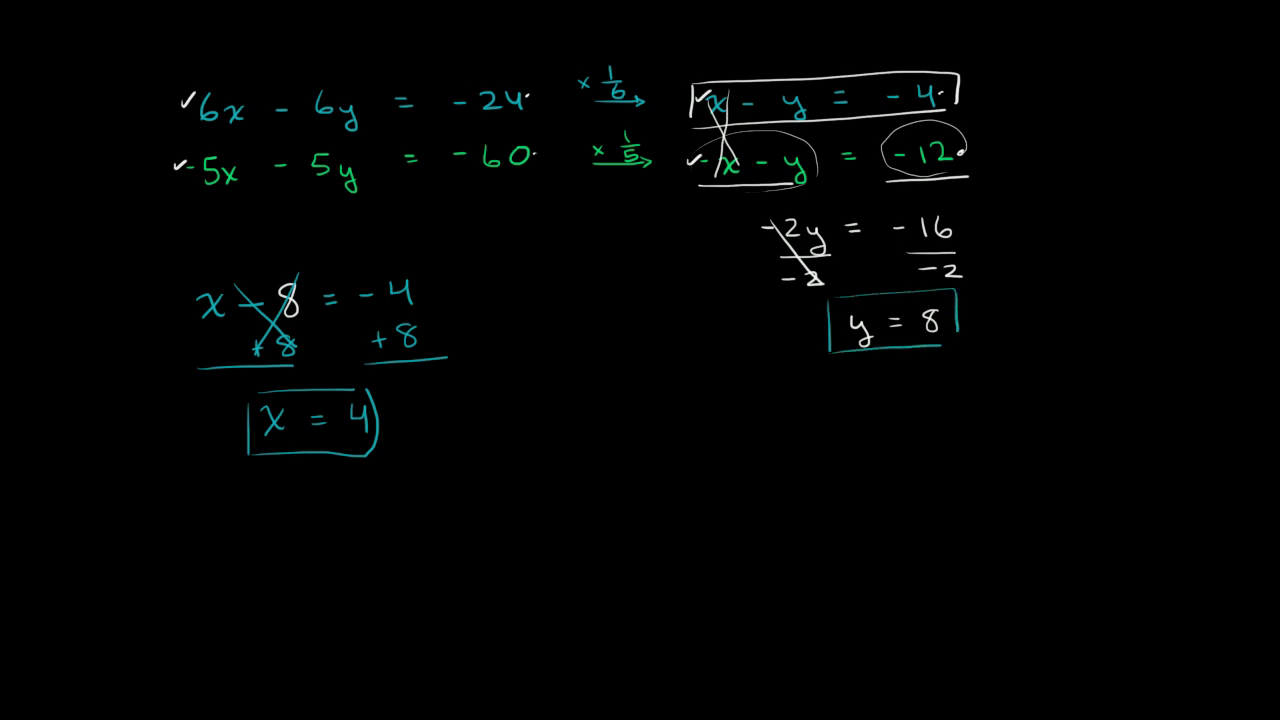 6x - 6y = -24 × 1/6 x - y = -4
-5x - 5y = -60 × 1/5 -x - y = -12
-2y = -16
-2 -2
y = 8
x - 8 = -4
+8 +8
x = 4